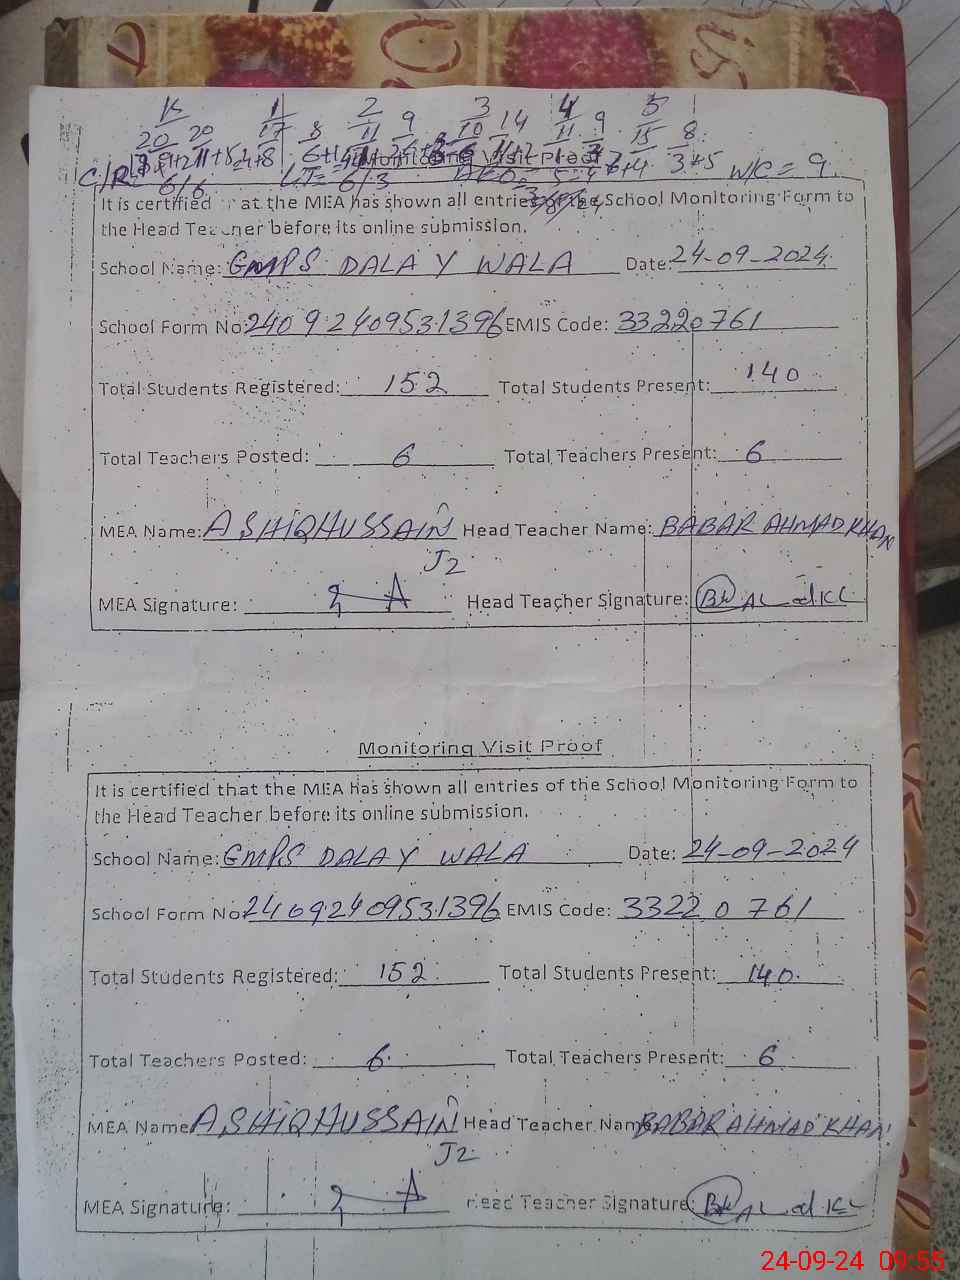 K 1 2 3 4 5
20 20 17 8 11 9 10 14 11 9 15 8
W/C = 9
Monitoring Visit Proof
6/6 6/3
It is certified at the MEA has shown all entries the School Monitoring Form to
the Head Teacher before its online submission.
School Name: GMPS DALAY WALA Date: 24-09-2024
School Form No 24092409531396 EMIS Code: 33220761
Total Students Registered: 152 Total Students Present: 140
Total Teachers Posted: 6 Total Teachers Present: 6
MEA Name: ASHIQ HUSSAIN Head Teacher Name: BABAR AHMAD KHAN
J2
MEA Signature: Head Teacher Signature:
Monitoring Visit Proof
It is certified that the MEA has shown all entries of the School Monitoring Form to
the Head Teacher before its online submission.
School Name: GMPS DALAY WALA Date: 24-09-2024
School Form No 24092409531396 EMIS Code: 33220761
Total Students Registered: 152 Total Students Present: 140
Total Teachers Posted: 6 Total Teachers Present: 6
MEA Name ASHIQ HUSSAIN Head Teacher Name BABAR AHMAD KHAN
J2
MEA Signature: Head Teacher Signature:
24-09-24 09:55